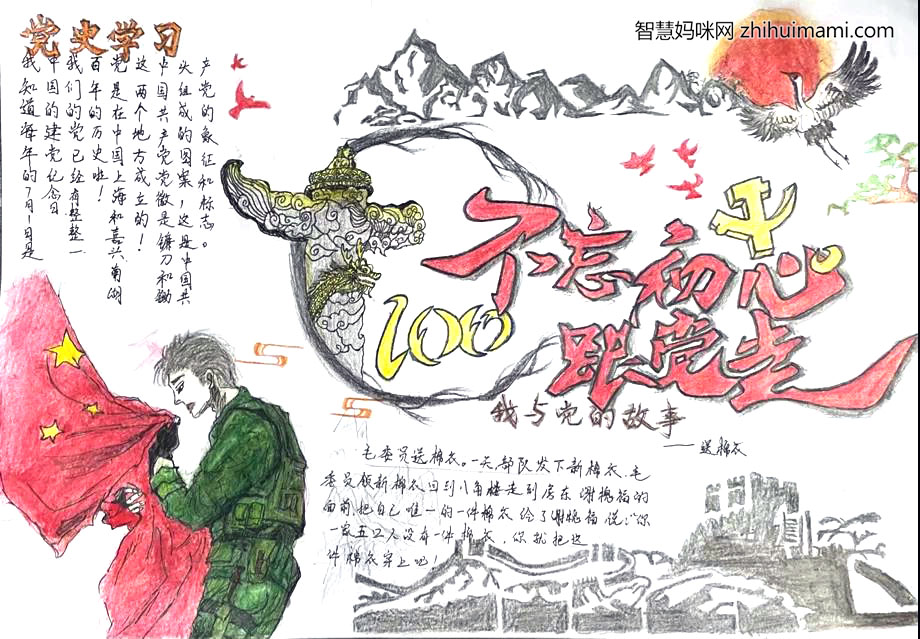 智慧妈咪网 zhihuimami.com
党史学习
我知道每年的7月1日是
中国的建党纪念日
我们的党已经有整整一
百年的历史啦!
党是在中国上海和嘉兴南湖
这两个地方成立的!
中国共产党党徽是镰刀和锄
头组成的图案,这是中国共
产党的象征和标志。
不忘初心
100
跟党走
我与党的故事
——送棉衣
毛委员送棉衣。一天部队发下新棉衣.毛
委员领新棉衣回到八角楼走到房东谢槐福的
面前把自己唯一的一件棉衣给了谢槐福说:“你
一家五口人没有一件棉衣,你就把这
件棉衣穿上吧!